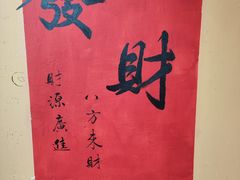 發財
八方來財
財源廣進